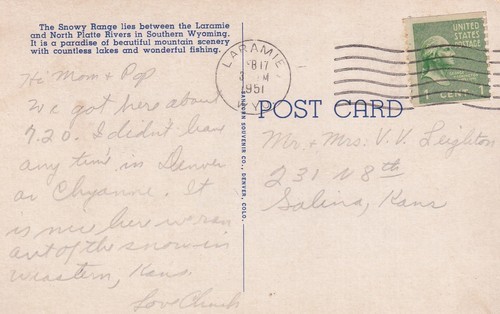 The Snowy Range lies between the Laramie
and North Platte Rivers in Southern Wyoming.
It is a paradise of beautiful mountain scenery
with countless lakes and wonderful fishing.
Hi Mom & Pop
We got here about
7.20. I didn't have
any time in Denver
or Chyanne. It
is nice here we ran
out of the snow in
western, Kans.
Love Chuck
SANBORN SOUVENIR CO., DENVER, COLO.
LARAMIE
1951
WYO
UNITED
STATES
POSTAGE
1 CENT 1
POST CARD
Mr. & Mrs. V. V. Leighton
231 N 8th
Salina, Kans